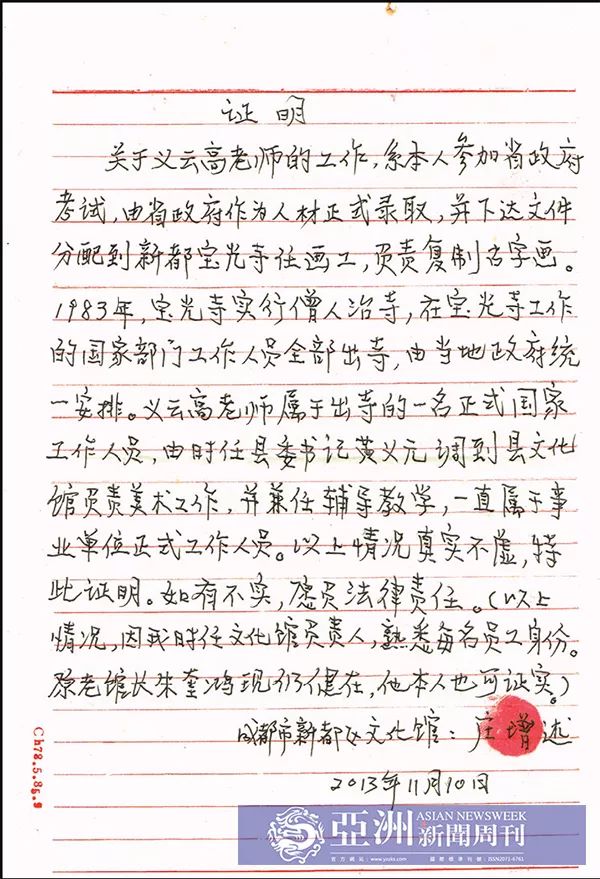 证明
关于义云高老师的工作,系本人参加省政府
考试,由省政府作为人材正式录取,并下达文件
分配到新都宝光寺任画工,负责复制名字画。
1983年,宝光寺实行僧人治寺,在宝光寺工作
的国家部门工作人员全部出寺,由当地政府统
一安排。义云高老师属于出寺的一名正式国家
工作人员,由时任县委书记黄义元调到县文化
馆负责美术工作,并兼任辅导教学,一直属于事
业单位正式工作人员。以上情况真实不虚,特
此证明。如有不实,愿负法律责任。(以上
情况,因我时任文化馆负责人,熟悉每名员工身份。
原老馆长朱奎鸿现仍健在,他本人也可证实。)
成都市新都区文化馆:庄增述
2013年11月10日
Ch78.5.85.9
亞洲 ASIAN NEWSWEEK 新聞周刊
官方網站:www.yzzks.com 國際標準刊號:ISSN2071-6761